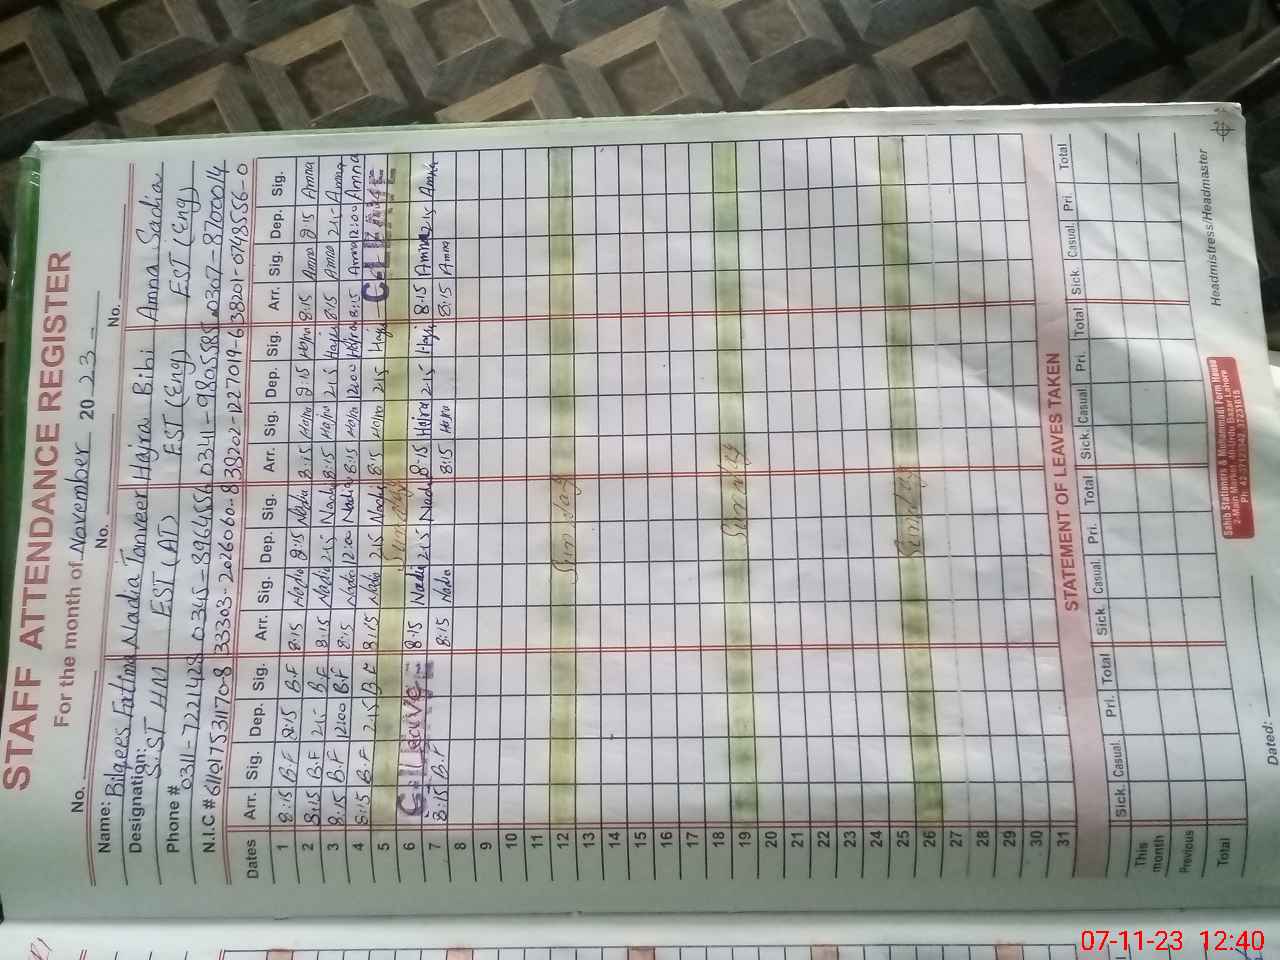 STAFF ATTENDANCE REGISTER
For the month of November 2023
No. No. No.
Name: Bilqees Fatima Nadia Tanveer Hajra Bibi Amna Sadia
Designation: S.ST HM EST (AT) EST (Eng) EST (Eng)
Phone # 0311-7221428 0345-8964556 0341-9805585 0307-8700014
N.I.C # 33303-2026060-8 38202-1227019-6 38201-0748556-0
Dates Arr. Sig. Dep. Sig. Arr. Sig. Dep. Sig. Arr. Sig. Dep. Sig. Arr. Sig. Dep. Sig.
1 8:15 B.F 2:15 B.F 8:15 Nadia 2:15 Nadia 8:15 Hajra 2:15 Hajra 8:15 Amna 2:15 Amna
2 8:15 B.F 2:15 B.F 8:15 Nadia 2:15 Nadia 8:15 Hajra 2:15 Hajra 8:15 Amna 2:15 Amna
3 8:15 B.F 12:00 B.F 8:15 Nadia 12:00 Nadia 8:15 Hajra 12:00 Hajra 8:15 Amna 12:00 Amna
4 8:15 B.F 2:15 B.F 8:15 Nadia 2:15 Nadia 8:15 Hajra 2:15 Hajra C. LEAVE
5 Sunday
6 C. Leave 8:15 Nadia 2:15 Nadia 8:15 Hajra 2:15 Hajra 8:15 Amna 2:15 Amna
7 8:15 B.F 8:15 Nadia 8:15 Hajra 8:15 Amna
8
9
10
11
12 Sunday
13
14
15
16
17
18
19 Sunday
20
21
22
23
24
25
26 Sunday
27
28
29
30
31
STATEMENT OF LEAVES TAKEN
Sick. Casual. Pri. Total Sick. Casual. Pri. Total Sick. Casual Pri. Total Sick. Casual. Pri. Total
This month
Previous
Total
Sahib Stationers & Muhammadi Form House
2-Main Market, 40-Urdu Bazar Lahore
Ph: 42-37123342, 37231618
Dated: Headmistress/Headmaster
07-11-23 12:40